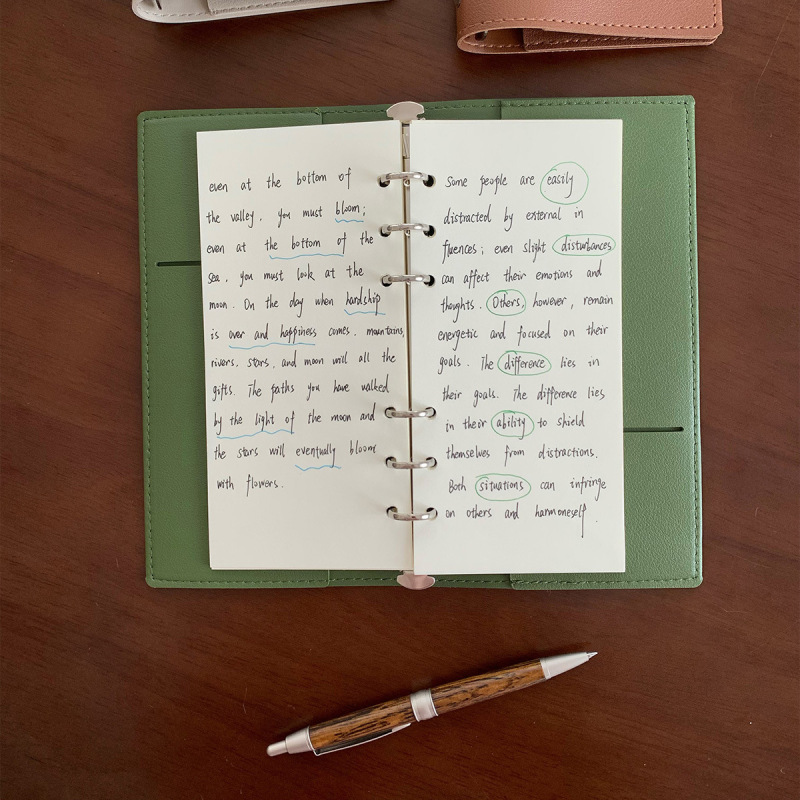 even at the bottom of
the valley, you must bloom;
even at the bottom of the
sea, you must look at the
moon. On the day when hardship
is over and happiness comes, mountains,
rivers, stars, and moon will all the
gifts. The paths you have walked
by the light of the moon and
the stars will eventually bloom
with flowers.
Some people are easily
distracted by external in
fluences; even slight disturbances
can affect their emotions and
thoughts. Others, however, remain
energetic and focused on their
goals. The difference lies in
their goals. The difference lies
in their ability to shield
themselves from distractions.
Both situations can infringe
on others and harmoneself.